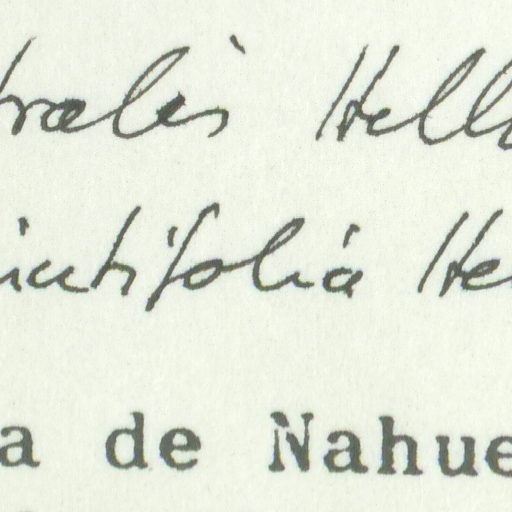 tralis Hell
intifolia He
a de Nahue